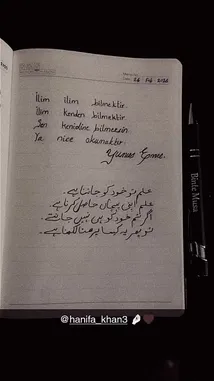 İlim ilim bilmektir.
İlim kenden bilmektir.
Sen kenidine bilmezsin.
Ya nice okumaktır.
Yunus Emre.
علم تو خود کو جاننا ہے۔
علم اپنی پہچان حاصل کرنا ہے۔
اگر تم خود کو ہی نہیں جانتے
تو پھر یہ کیسا پڑھنا لکھنا ہے۔
Binte Musa
@hanifa_khan3